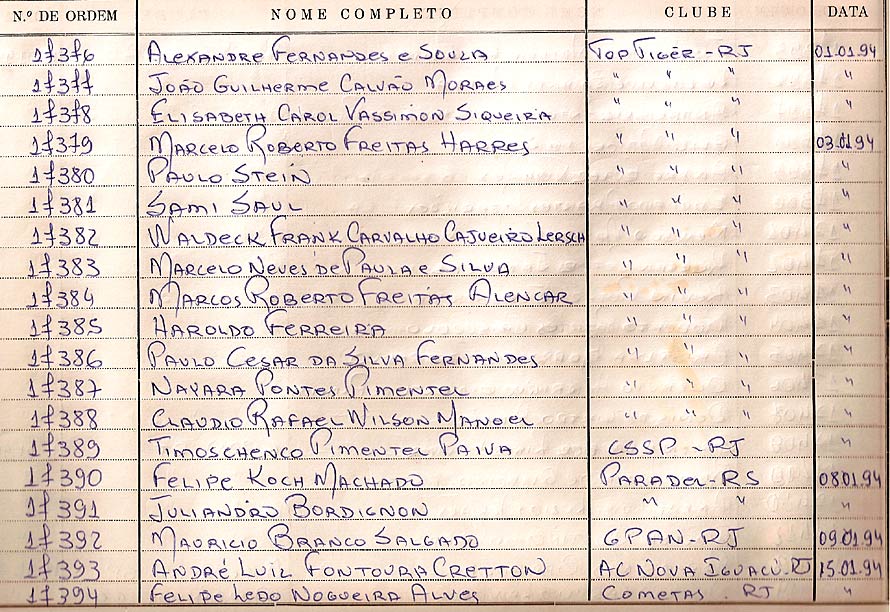 N.º DE ORDEM NOME COMPLETO CLUBE DATA
17376 ALEXANDRE FERNANDES e SOUZA TOP TIGER - RJ 01.01.94
17377 JOÃO GUILHERME CALVÃO MORAES " " " "
17378 ELISABETH CAROL VASSIMON SIQUEIRA " " " "
17379 MARCELO ROBERTO FREITAS HARRES " " " 03.01.94
17380 PAULO STEIN " " " "
17381 SAMI SAUL " " " "
17382 WALDECK FRANK CARVALHO CAJUEIRO LERSCH " " " "
17383 MARCELO NEVES DE PAULA e SILVA " " " "
17384 MARCOS ROBERTO FREITAS ALENCAR " " " "
17385 HAROLDO FERREIRA " " " "
17386 PAULO CESAR DA SILVA FERNANDES " " " "
17387 NAYARA PONTES PIMENTEL " " " "
17388 CLAUDIO RAFAEL WILSON MANOEL " " " "
17389 TIMOSCHENCO PIMENTEL PAIVA CSSP - RJ "
17390 FELIPE KOCH MACHADO PARADEL - RS 08.01.94
17391 JULIANDRO BORDIGNON " " "
17392 MAURICIO BRANCO SALGADO GPAN - RJ 09.01.94
17393 ANDRÉ LUIZ FONTOURA CRETTON AC NOVA IGUACU - RJ 15.01.94
17394 FELIPE LEDO NOGUEIRA ALVES COMETAS - RJ "